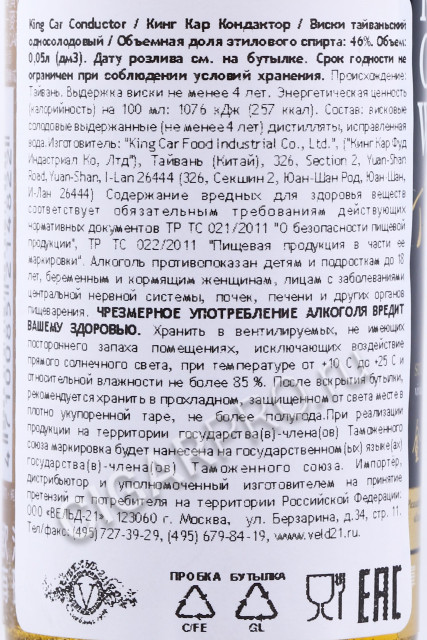 King Car Conductor / Кинг Кар Кондактор / Виски тайваньский
односолодовый / Объемная доля этилового спирта: 46%. Объем:
0,05л (дм3). Дату розлива см. на бутылке. Срок годности не
ограничен при соблюдении условий хранения. Происхождение:
Тайвань. Выдержка виски не менее 4 лет. Энергетическая ценность
(калорийность) на 100 мл: 1076 кДж (257 ккал). Состав: висковые
солодовые выдержанные (не менее 4 лет) дистилляты, исправленная
вода. Изготовитель: "King Car Food Industrial Co., Ltd.", ("Кинг Кар Фуд
Индастриал Ко, Лтд"), Тайвань (Китай), 326, Section 2, Yuan-Shan
Road, Yuan-Shan, I-Lan 26444 (326, Секшин 2, Юан-Шан Род, Юан-Шан,
И-Лан 26444) Содержание вредных для здоровья веществ
соответствует обязательным требованиям действующих
нормативных документов ТР ТС 021/2011 "О безопасности пищевой
продукции", ТР ТС 022/2011 "Пищевая продукция в части ее
маркировки". Алкоголь противопоказан детям и подросткам до 18
лет, беременным и кормящим женщинам, лицам с заболеваниями
центральной нервной системы, почек, печени и других органов
пищеварения. ЧРЕЗМЕРНОЕ УПОТРЕБЛЕНИЕ АЛКОГОЛЯ ВРЕДИТ
ВАШЕМУ ЗДОРОВЬЮ. Хранить в вентилируемых, не имеющих
постороннего запаха помещениях, исключающих воздействие
прямого солнечного света, при температуре от +10 С до +25 С и
относительной влажности не более 85 %. После вскрытия бутылки,
рекомендуется хранить в прохладном, защищенном от света месте в
плотно укупоренной таре, не более полугода.При реализации
продукции на территории государства(в)-члена(ов) Таможенного
союза маркировка будет нанесена на государственном(ых) языке(ах)
государства(в)-члена(ов) Таможенного союза. Импортер,
дистрибьютор и уполномоченный изготовителем на принятие
претензий от потребителя на территории Российской Федерации:
ООО «ВЕЛЬД-21», 123060 г. Москва, ул. Берзарина, д.34, стр. 11.
Тел/факс: (495)727-39-29, (495) 679-84-19, www.veld21.ru.
ПРОБКА БУТЫЛКА
C/FE GL
EAC